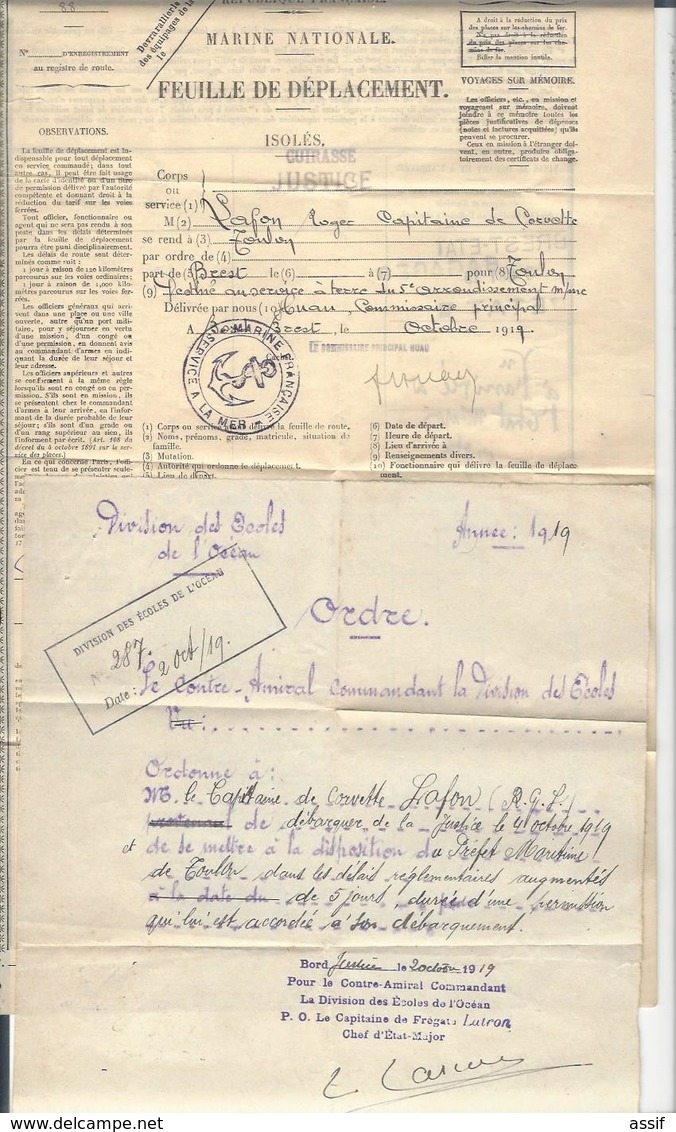 88
RÉPUBLIQUE FRANÇAISE.
N° D'ENREGISTREMENT
au registre de route.
des équipages de la
MARINE NATIONALE.
FEUILLE DE DÉPLACEMENT.
ISOLÉS.
CUIRASSÉ
JUSTICE
A droit à la réduction du prix
des places sur les chemins de fer.
Ne pas droit à la réduction
du prix des places sur les che-
mins de fer.
Biffer la mention inutile.
VOYAGES SUR MÉMOIRE.
Les officiers, etc., en mission et
voyageant sur mémoire, doivent
joindre à ce mémoire toutes les
pièces justificatives de dépenses
(notes et factures acquittées) qu'ils
peuvent se procurer.
Ceux en mission à l'étranger doi-
vent, en outre, produire obliga-
toirement des certificats de change.
OBSERVATIONS.
La feuille de déplacement est in-
dispensable pour tout déplacement
en service commandé; dans tout
autre cas, il peut être fait usage
de la carte d'identité ou d'un titre
de permission délivré par l'autorité
compétente et donnant droit à la
réduction du tarif sur les voies
ferrées.
Tout officier, fonctionnaire ou
agent qui ne sera pas rendu à son
poste dans les délais déterminés
par les ordres dont il est porteur
pourra être puni disciplinairement.
Les délais de route sont déter-
minés comme suit :
1 jour à raison de 120 kilomètres
parcourus sur les voies ordinaires;
1 jour à raison de 1,000
kilomètres parcourus sur les voies
ferrées.
Les officiers généraux qui arri-
vent dans une place ou une ville
ouverte, autre qu'un port mili-
taire, pour y séjourner en vertu
d'une mission, d'un congé ou
d'une permission, en donnent avis
au commandant d'armes en indi-
quant la durée de leur séjour et
leur adresse.
Les officiers supérieurs et autres
se conforment à la même règle
lorsqu'ils sont en congé ou en per-
mission. S'ils sont en mission, ils
se présentent chez le comman-
dant d'armes à leur arrivée, en l'in-
formant de la durée probable de leur
séjour; s'ils sont d'un grade ou
d'un rang supérieur au sien, ils
l'informent par écrit. (Art. 108 du
décret du 4 octobre 1891 sur le ser-
vice des places.)
En ce qui concerne Paris, l'offi-
cier est tenu de se présenter seule-
Corps
ou
service (1)
M (2) Lafon Roger Capitaine de Corvette
se rend à (3) Toulon
par ordre de (4)
part de (5) Brest le (6) à (7) pour (8) Toulon
(9) Destiné au service à terre au 5e arrondissement mme
Délivrée par nous (10) Huau, Commissaire principal
A Brest, le Octobre 1919.
Cachet
MARINE FRANÇAISE
SERVICE A LA MER
LE COMMISSAIRE PRINCIPAL HUAU
BREST-ETAT
(1) Corps ou service dont délivre la feuille de route.
(2) Noms, prénoms, grade, matricule, situation de
famille.
(3) Mutation.
(4) Autorité qui ordonne le déplacement.
(5) Lieu de départ.
(6) Date de départ.
(7) Heure de départ.
(8) Lieu d'arrivée à
(9) Renseignements divers.
(10) Fonctionnaire qui délivre la feuille de déplace-
ment.
Division des Ecoles
de l'Océan
Année : 1919
DIVISION DES ÉCOLES DE L'OCÉAN
N° 287.
Date : 2 oct/19.
Ordre.
Le Contre-Amiral Commandant la Division des Ecoles
Vu :
Ordonne à :
M. le Capitaine de Corvette Lafon (R.G.L.)
de débarquer de la Justice le 4 octobre 1919
et de se mettre à la disposition du Préfet Maritime
de Toulon dans les délais réglementaires augmentés
à la date du de 5 jours, durée d'une permission
qui lui est accordée à son débarquement.
Bord Justice le 2 octobre 1919
Pour le Contre-Amiral Commandant
La Division des Écoles de l'Océan
P. O. Le Capitaine de Frégate Lutron
Chef d'État-Major
assif